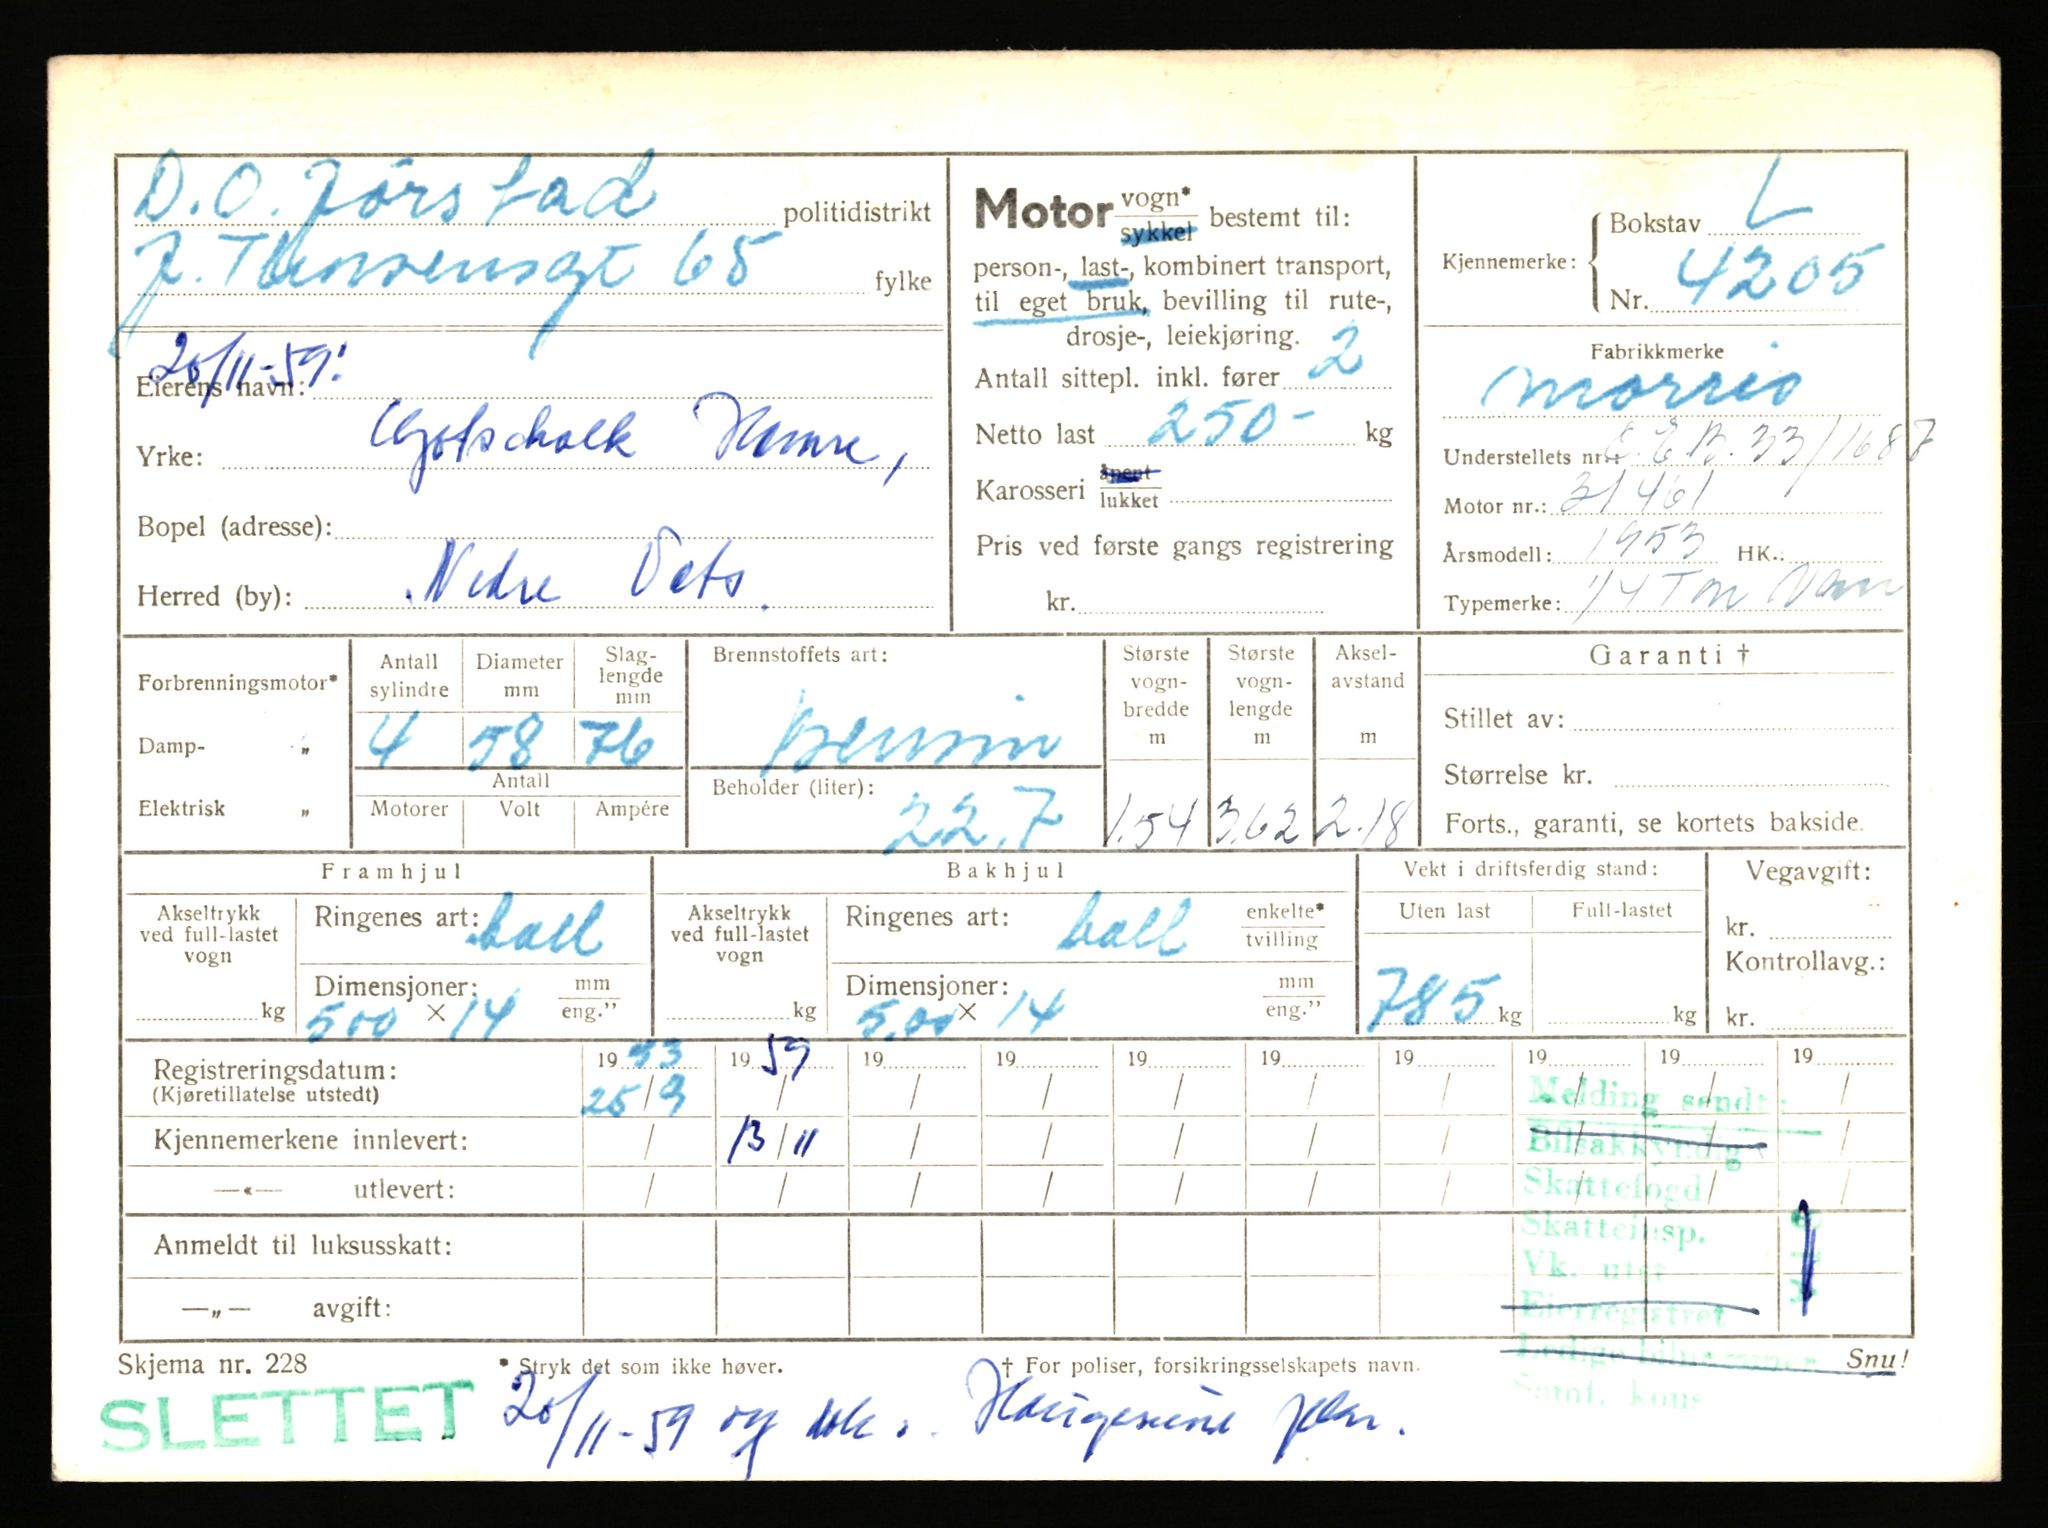 D.O. Jørstad politidistrikt
J. Thorsensgt 65 fylke
20/11-59!
Eierens navn:
Yrke: Gotschalk Hamre,
Bopel (adresse):
Herred (by): Nedre Vats.
Motor vogn* sykkel bestemt til:
person-, last-, kombinert transport,
til eget bruk, bevilling til rute-,
drosje-, leiekjøring.
Antall sittepl. inkl. fører 2
Netto last 250- kg
Karosseri åpent lukket
Pris ved første gangs registrering
kr.
Kjennemerke: Bokstav L
Nr. 4205
Fabrikkmerke
Morris
Understellets nr.: E.E.B. 33/1687
Motor nr.: 31461
Årsmodell: 1953 HK.:
Typemerke: 1/4 Ton Van
Forbrenningsmotor*
Damp- „
Elektrisk „
Antall sylindre 4
Diameter mm 58
Slaglengde mm 76
Antall
Motorer Volt Ampére
Brennstoffets art:
Bensin
Beholder (liter):
22,7
Største vognbredde m 1.54
Største vognlengde m 3.62
Akselavstand m 2.18
Garanti †
Stillet av:
Størrelse kr.
Forts., garanti, se kortets bakside.
Framhjul
Akseltrykk ved full-lastet vogn kg
Ringenes art: ball
Dimensjoner: mm eng.”
500 × 14
Bakhjul
Akseltrykk ved full-lastet vogn kg
Ringenes art: ball enkelte* tvilling
Dimensjoner: mm eng.”
5.00 × 14
Vekt i driftsferdig stand:
Uten last Full-lastet
785 kg kg
Vegavgift:
kr.
Kontrollavg.:
kr.
Registreringsdatum: 1953 1959 19 19 19 19 19 19 19 19
(Kjøretillatelse utstedt) 25/9 / / / / / / / / /
Kjennemerkene innlevert: / 13/11 / / / / / / / /
—«— utlevert: / / / / / / / / / /
Anmeldt til luksusskatt:
—„— avgift:
Melding sendt:
Bilsakkyndig
Skattefogd
Skatteinsp.
Vk. utst
Eierregistret
Ledige bilnummer
Saml. kons
Skjema nr. 228 * Stryk det som ikke høver. † For poliser, forsikringsselskapets navn. Snu!
SLETTET
20/11-59 og dok. Haugesund